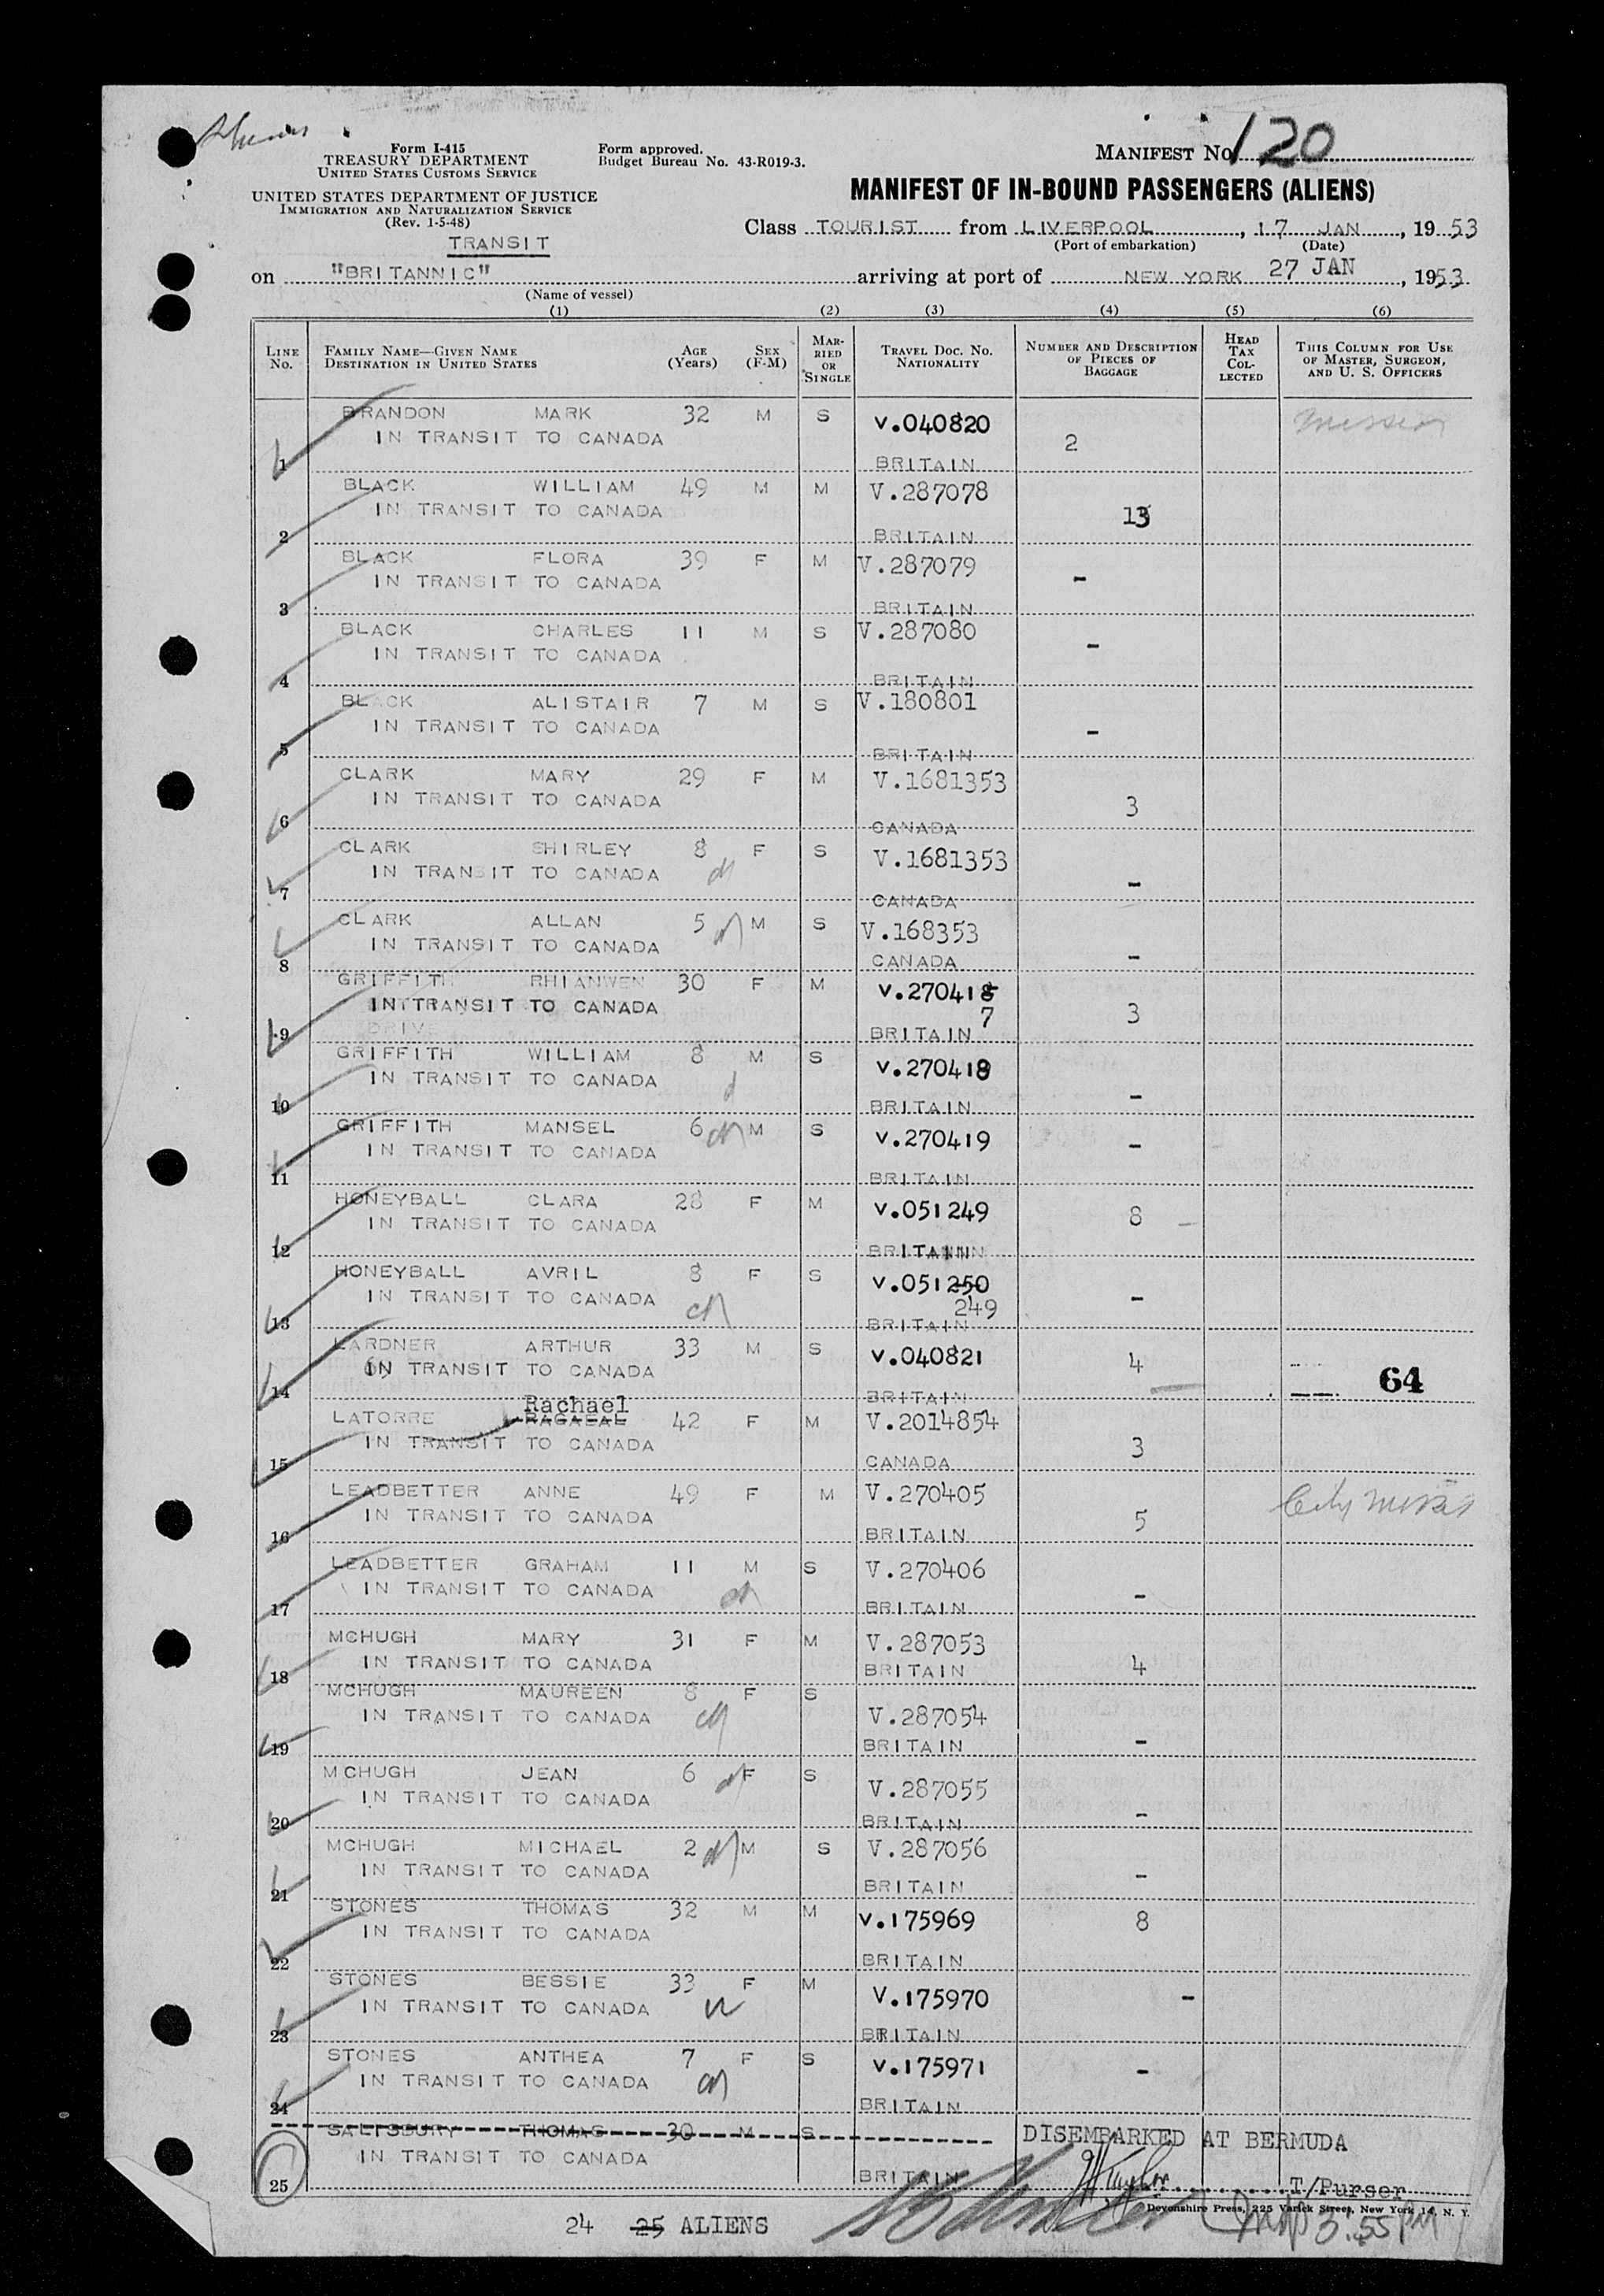 MANIFEST NO. 120
Form I-415
TREASURY DEPARTMENT
UNITED STATES CUSTOMS SERVICE
Form approved.
Budget Bureau No. 43-R019-3.
UNITED STATES DEPARTMENT OF JUSTICE
IMMIGRATION AND NATURALIZATION SERVICE
(Rev. 1-5-48)
MANIFEST OF IN-BOUND PASSENGERS (ALIENS)
TRANSIT
Class TOURIST from LIVERPOOL, 17 JAN, 1953
(Port of embarkation) (Date)
on "BRITANNIC" arriving at port of NEW YORK 27 JAN, 1953
(Name of vessel)
(1) (2) (3) (4) (5) (6)
LINE NO. FAMILY NAME—GIVEN NAME DESTINATION IN UNITED STATES AGE (YEARS) SEX (F-M) MARRIED OR SINGLE TRAVEL DOC. NO. NATIONALITY NUMBER AND DESCRIPTION OF PIECES OF BAGGAGE HEAD TAX COLLECTED THIS COLUMN FOR USE OF MASTER, SURGEON, AND U. S. OFFICERS
BRANDON MARK 32 M S V.040820
IN TRANSIT TO CANADA 2
1 BRITAIN
BLACK WILLIAM 49 M M V.287078
IN TRANSIT TO CANADA 13
2 BRITAIN
BLACK FLORA 39 F M V.287079
IN TRANSIT TO CANADA -
3 BRITAIN
BLACK CHARLES 11 M S V.287080
IN TRANSIT TO CANADA -
4 BRITAIN
BLACK ALISTAIR 7 M S V.180801
IN TRANSIT TO CANADA -
5 BRITAIN
CLARK MARY 29 F M V.1681353
IN TRANSIT TO CANADA 3
6 CANADA
CLARK SHIRLEY 8 F S V.1681353
IN TRANSIT TO CANADA -
7 CANADA
CLARK ALLAN 5 M S V.168353
IN TRANSIT TO CANADA -
8 CANADA
GRIFFITH RHIANWEN 30 F M V.270418
INTTRANSIT TO CANADA 7 3
DRIVE
9 BRITAIN
GRIFFITH WILLIAM 8 M S V.270418
IN TRANSIT TO CANADA -
10 BRITAIN
GRIFFITH MANSEL 6 M S V.270419
IN TRANSIT TO CANADA -
11 BRITAIN
HONEYBALL CLARA 28 F M V.051249
IN TRANSIT TO CANADA 8
12 BRITAINNN
HONEYBALL AVRIL 8 F S V.051250
IN TRANSIT TO CANADA 249 -
13 BRITAIN
LARDNER ARTHUR 33 M S V.040821
IN TRANSIT TO CANADA 4 64
14 BRITAIN
Rachael
LATORRE RAGAEAL 42 F M V.2014854
IN TRANSIT TO CANADA 3
15 CANADA
LEADBETTER ANNE 49 F M V.270405
IN TRANSIT TO CANADA 5
16 BRITAIN
LEADBETTER GRAHAM 11 M S V.270406
IN TRANSIT TO CANADA -
17 BRITAIN
MCHUGH MARY 31 F M V.287053
IN TRANSIT TO CANADA 4
18 BRITAIN
MCHUGH MAUREEN 8 F S
IN TRANSIT TO CANADA V.287054
19 BRITAIN -
MCHUGH JEAN 6 F S V.287055
IN TRANSIT TO CANADA -
20 BRITAIN
MCHUGH MICHAEL 2 M S V.287056
IN TRANSIT TO CANADA -
21 BRITAIN
STONES THOMAS 32 M M V.175969 8
IN TRANSIT TO CANADA
22 BRITAIN
STONES BESSIE 33 F M V.175970 -
IN TRANSIT TO CANADA
23 BRITAIN
STONES ANTHEA 7 F S V.175971 -
IN TRANSIT TO CANADA
24 BRITAIN
SALISBURY THOMAS 30 M S DISEMBARKED AT BERMUDA
IN TRANSIT TO CANADA
25 BRITAIN T/Purser
Devonshire Press, 225 Varick Street, New York 14, N. Y.
24 25 ALIENS 3.55 PM